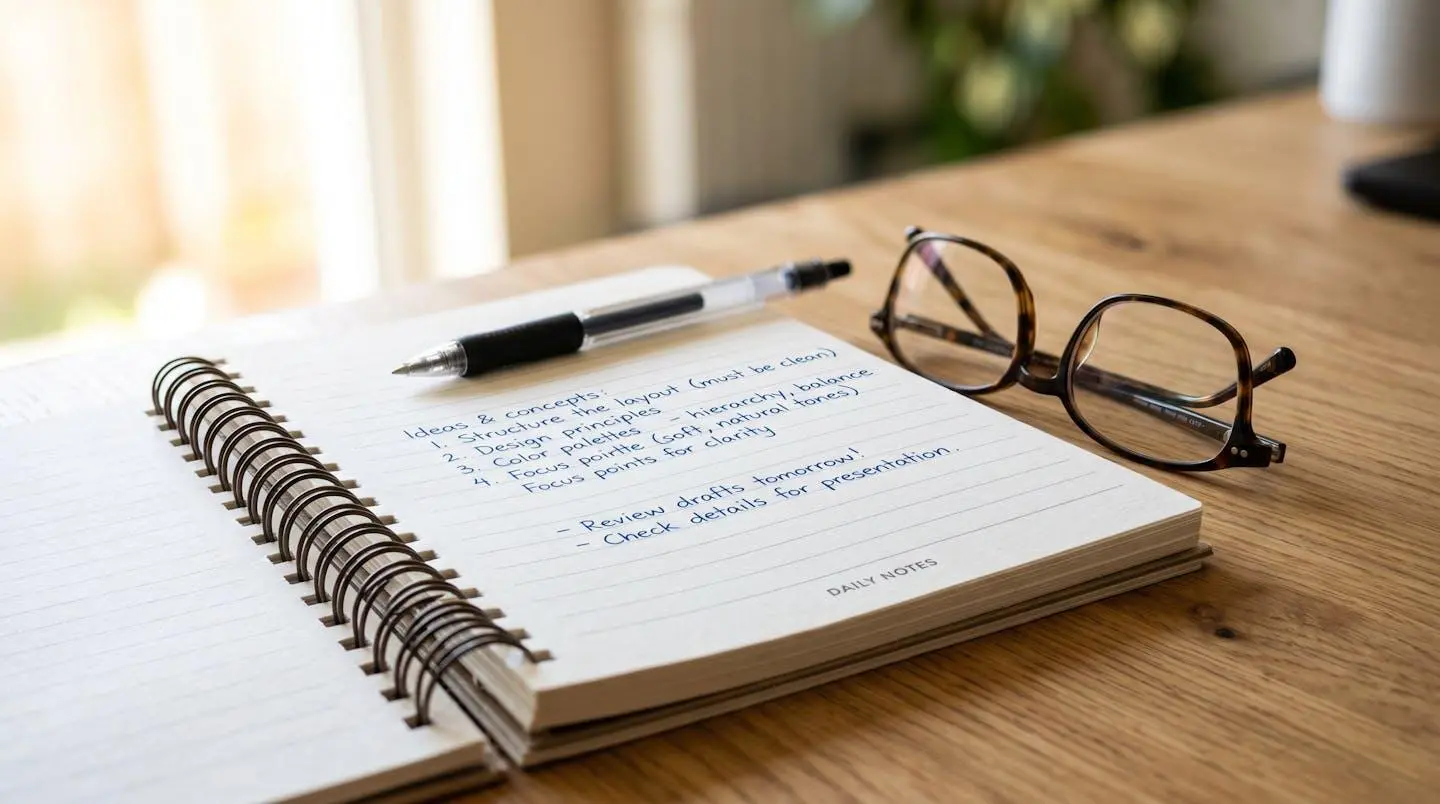 Ideas & concepts:
1. Structure the layout (must be clean)
2. Design principles - hierarchy, balance
3. Color palettes
4. Focus poirtte (soft, natural tones)
Focus points for clarity
- Review drafts tomorrow!
- Check details for presentation.
DAILY NOTES